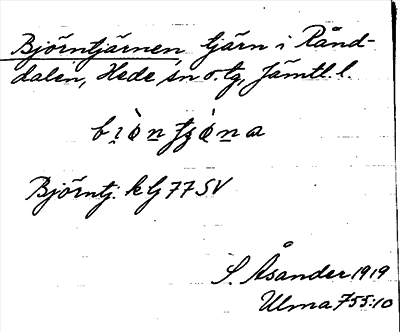 Björntjärnen, tjärn i Rånd-
dalen, Hede sn o. tg, Jämtl. l.
Björntj. k lj 77 SV
S. Åsander 1919
Ulma 755:10